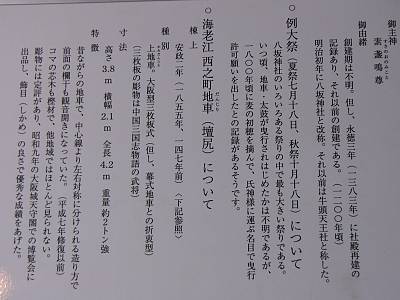 御主神
素盞嗚尊
すさのおのみこと
御由緒
創建期は不明。但し、永徳三年(一三八三年)に社殿再建の
記録あり、それ以前の創建である。(一二〇〇年頃)
明治初年に八坂神社と改称。それ以前は牛頭天王社と称した。
○例大祭(夏祭七月十八日、秋祭十月十八日)について
八坂神社のいろいろある祭りの中で最も大きい祭りである。
いつ頃、地車・太鼓が曳行されはじめたかは不明であるが、
一八〇〇年頃に麦の初穂を摘んで、氏神様に運ぶ名目で曳行
許可願いを出したとの記録があるそうです。
○海老江西之町地車(壇尻)について
だんじり
棟上
安政二年(一八五五年、一四七年前)(下記参照)
種別
上地車。大阪型三枚板式(但し、幕式地車との折衷型)
(三枚板の彫物は中国三国志物語の武将)
寸法
高さ3.8m 横幅2.1m 全長4.2m 重量約2トン強
特徴
昔ながらの地車で、中心線より左右対称に分けられる造り方で
前面の欄干も観音開きになっていた。(平成七年修復以前)
コマの芯木も樫材で、他地域ではほとんど見られない。
彫物には定評があり、昭和九年の大阪城天守閣での博覧会に
出品し、飾目(しかめ)の良さで優秀な成績をあげた。